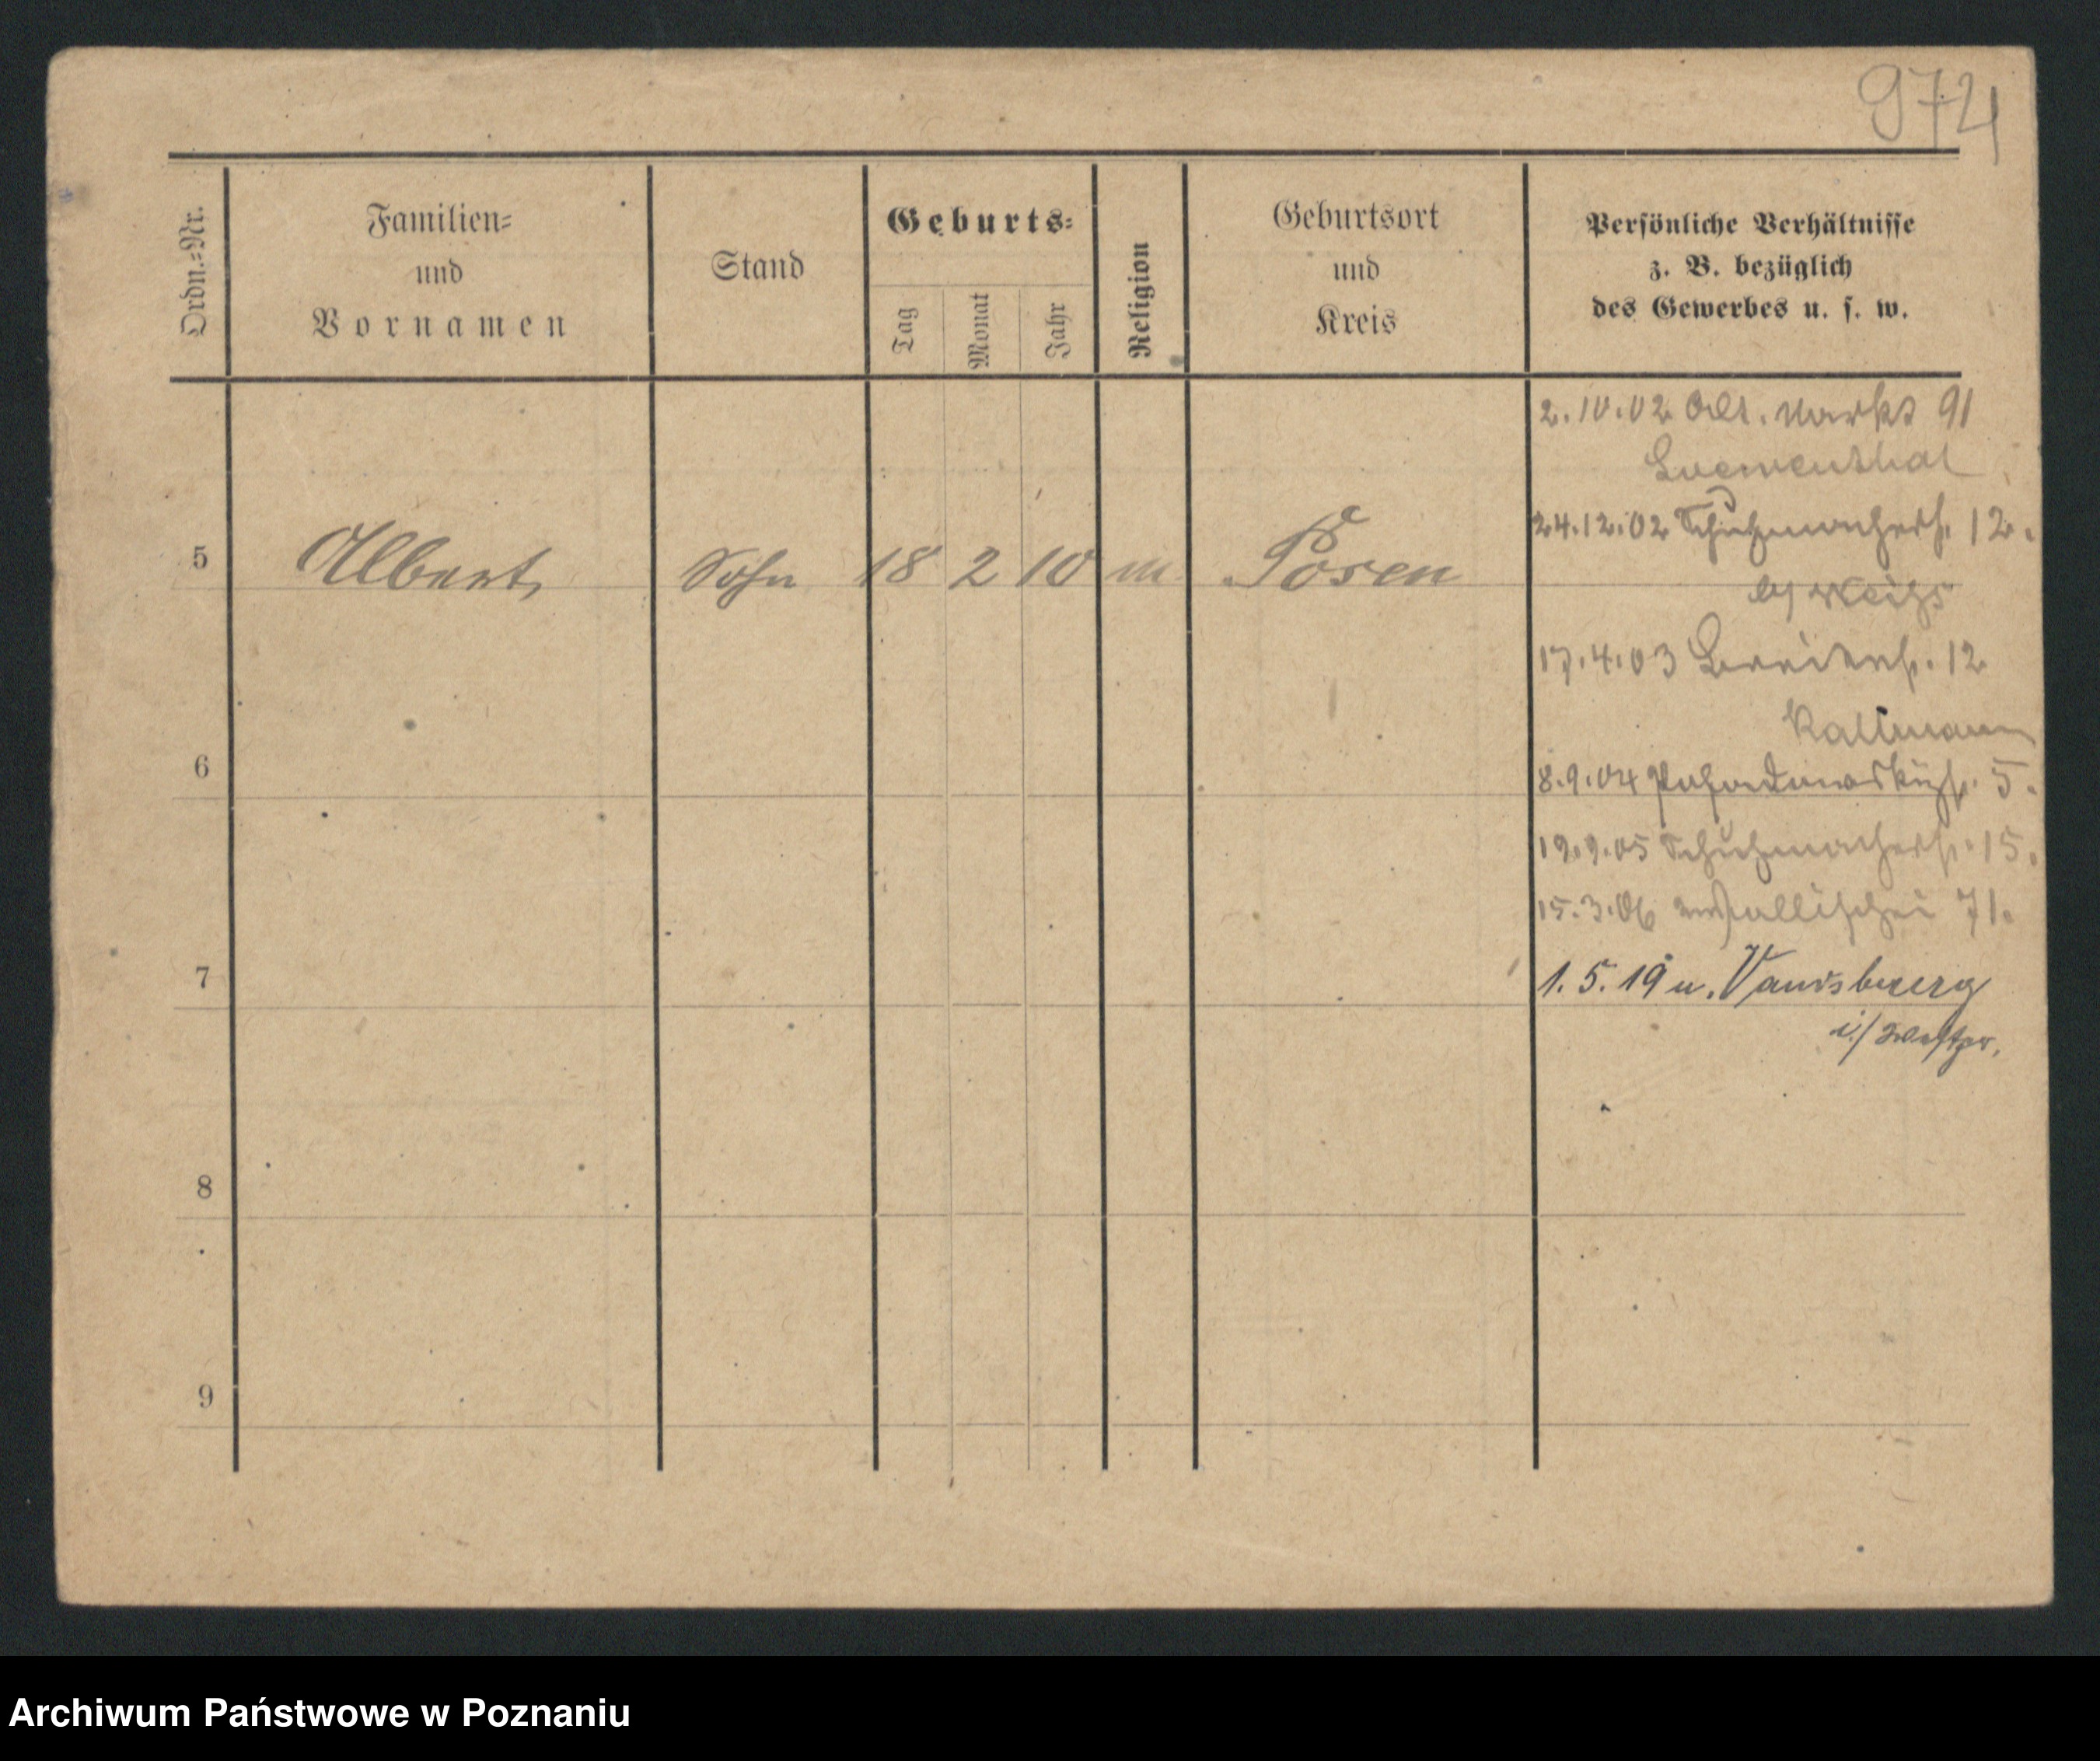 974
Ordn.-Nr.
Familien-
und
Vornamen
Stand
Geburts-
Tag
Monat
Jahr
Religion
Geburtsort
und
Kreis
Persönliche Verhältnisse
z. B. bezüglich
des Gewerbes u. s. w.
2.10.02 Alt. Markt 91
Loewenthal
24.12.02 Schuhmacherst. 12.
5 Albert, Sohn 18 2 10 m Posen
17.4.03 Breitest. 12
Kallmann
6
8.9.04 5.
19.9.05 Schuhmacherst. 15.
15.3.06 Wallischei 71.
7
1.5.19 n. Vandsburg
i/ Westpr.
8
9
Archiwum Państwowe w Poznaniu